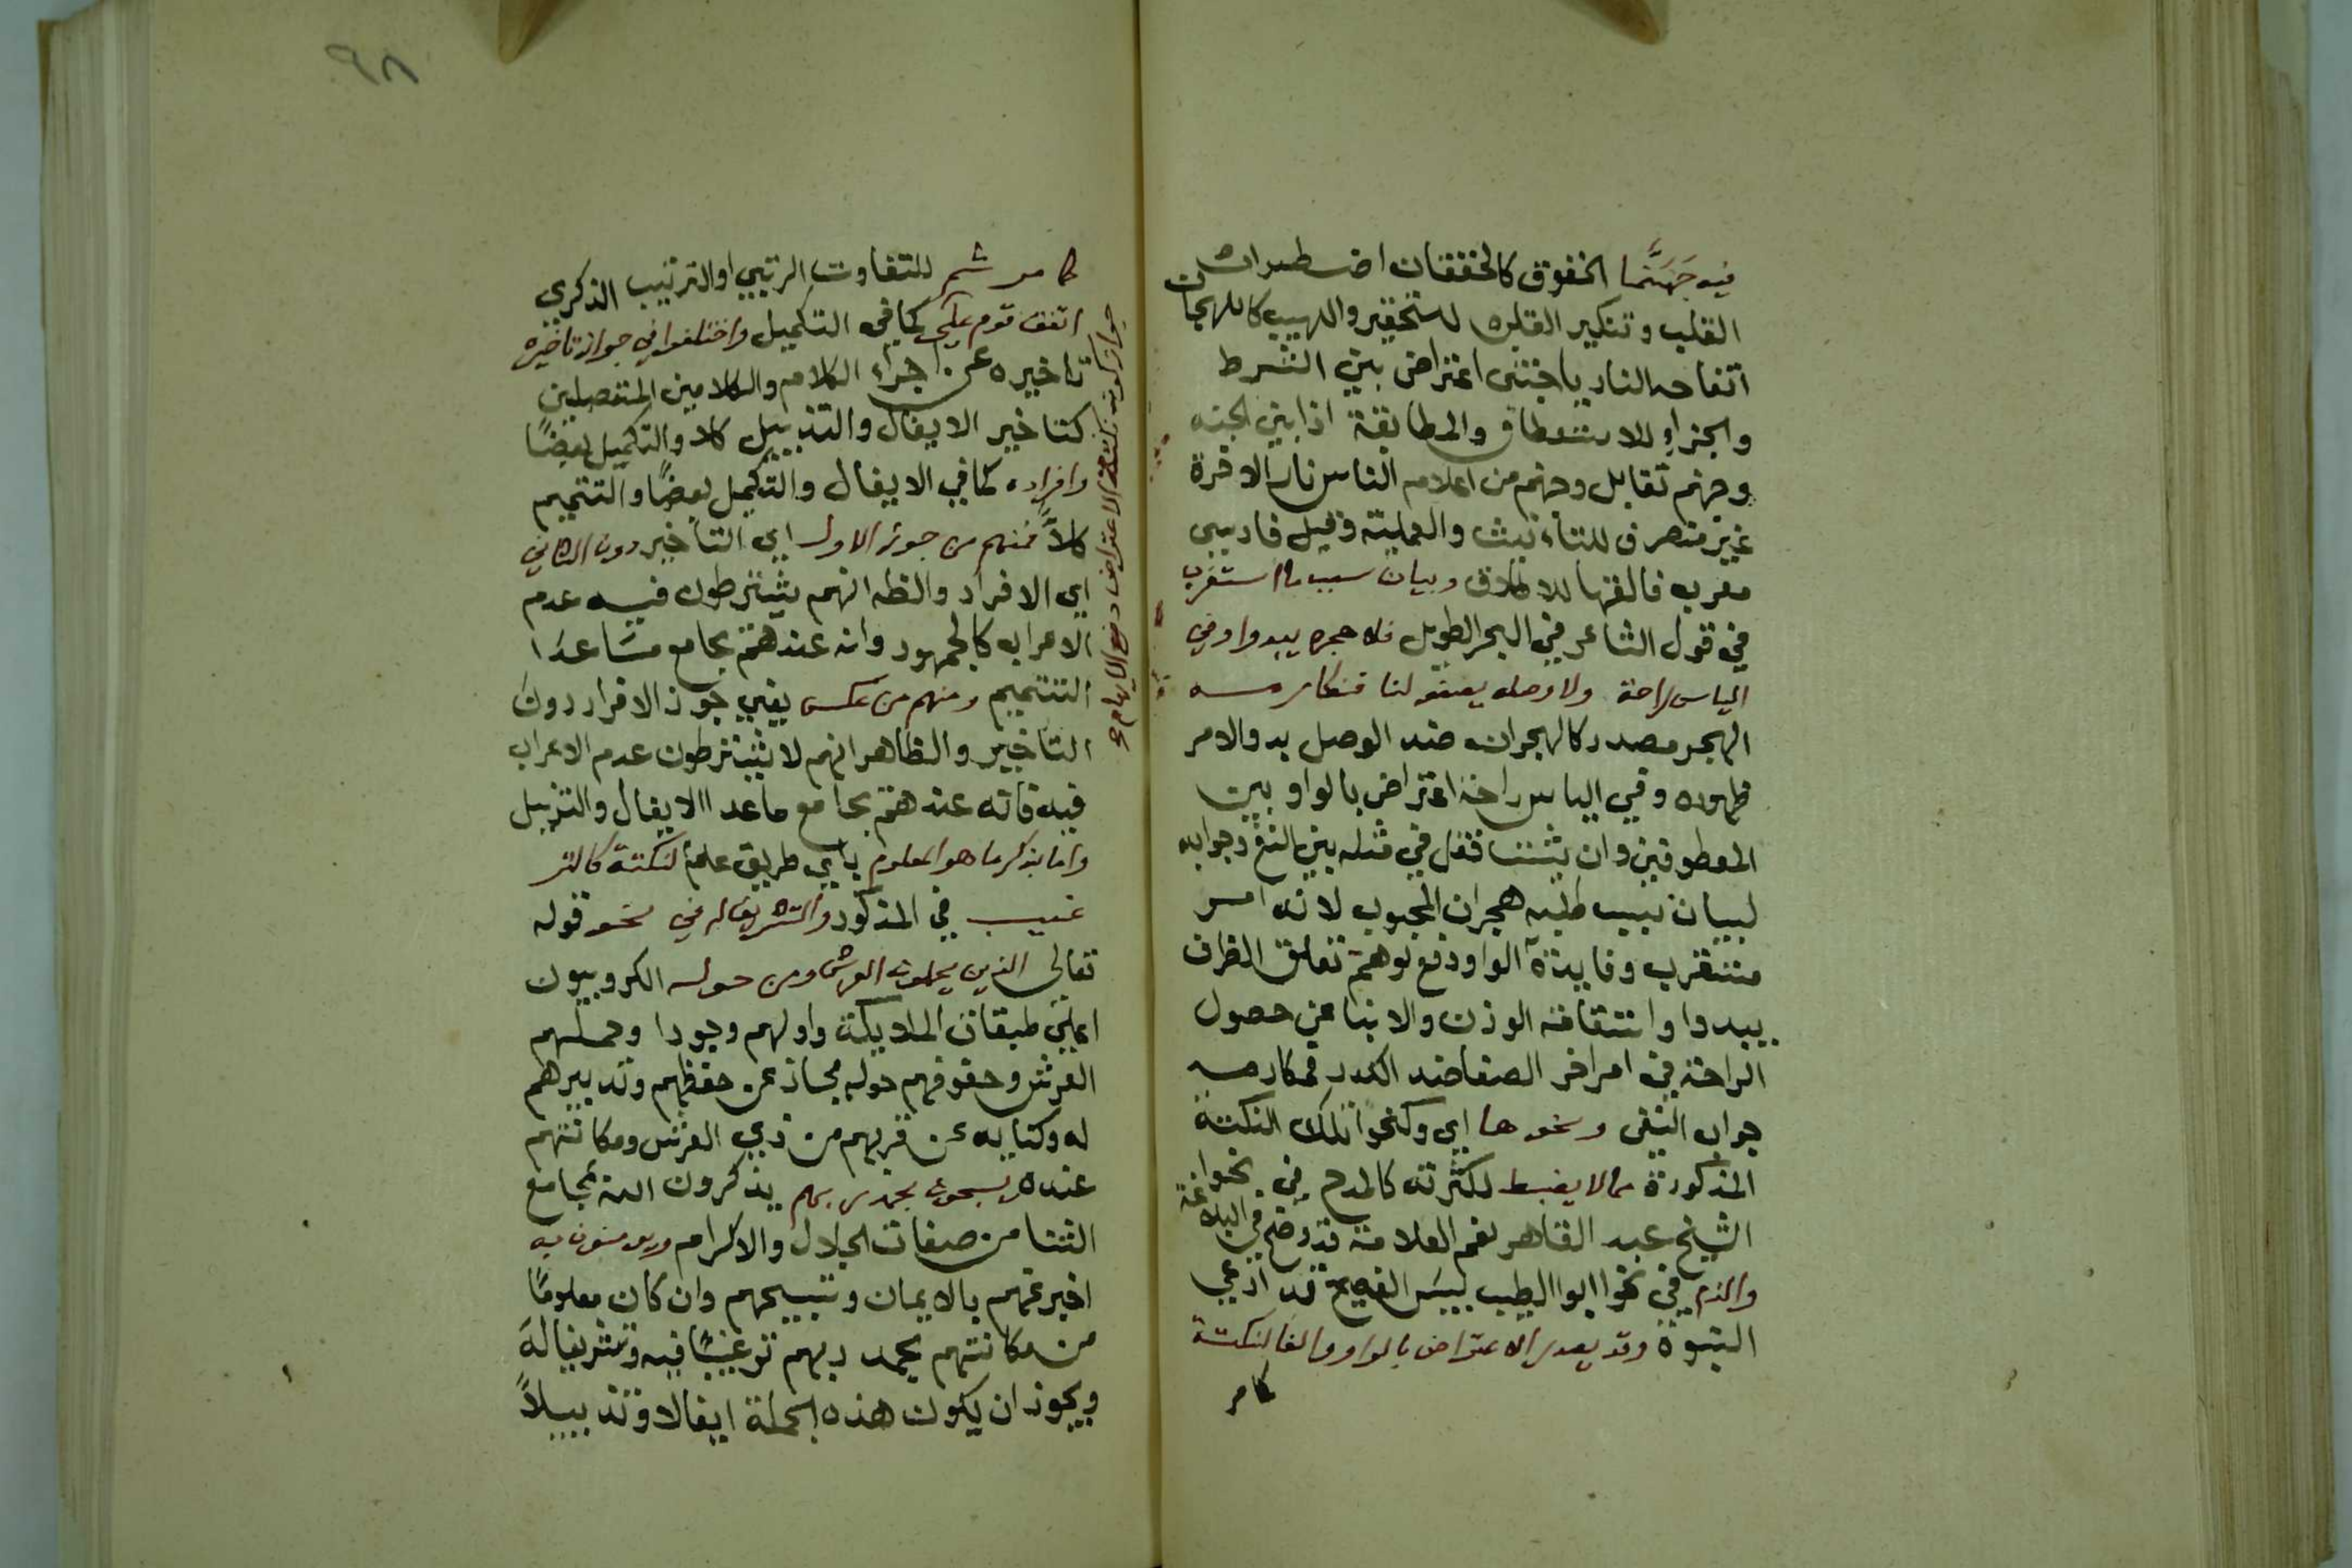 فيه جَهَنَّما الخفوق كالخفقان اضطراب
القلب وتنكير القلب للتحقير واللهيب كاللهبان
اتقاد النار يا جنتي اعتراض بين الشرط
والجزاء للاستعطاف والمطابقة اذا بين الجنة
وجهنم تقابل وجهنم من اعلام الناس نار الاخرة
غير منصرف للتأنيث والعلمية وقيل فارسي
معرب فالفها للاطلاق وبيان سبب ما استغرب
في قول الشاعر في البحر الطويل فلا هجره يبدوا وفي
الياس راحة ولا وصله يصفو لنا فنكارمه
الهجر مصدر كالهجران ضد الوصل يد والامر
ظهوره وفي الياس راحة اعتراض بالواو بين
المعطوفين وان شئت فقل في مثله بين النفي وجوابه
لبيان سبب طلبه هجران المحبوب لانه امر
مستغرب وفايدة الواو دفع توهم تعلق الظرف
بيبدوا واستقامة الوزن والانبا عن حصول
الراحة في امر اخر الصفا ضد الكدر فنكارمه
جواب النفي ونحوها اي وكنحو تلك النكتة
المذكورة مما لا يضبط لكثرته كالمدح في نحو
الشيخ عبد القاهر نعم العلامة قد وضح في البلاغة
والذم في نحو ابوا الطيب ليس الفصيح قد ادعي
النبوة وقد يصدر الاعتراض بالواو والفا لنكتة
كامر
٩٨
كامر ثم للتفاوت الرتبي او الترتيب الذكري
اتفق قوم علي كما في التكميل واختلفوا في جواز تاخيره
تاخيره عن اجزاء الكلام والكلامين المتصلين
كتاخير الايغال والتذييل كلا والتكميل بعضًا
وافراده كما في الايغال والتكميل بعضًا والتتميم
كلاً فمنهم من جوز الاول اي التأخير دون الثاني
اي الافراد والظه انهم يشترطون فيه عدم
الاعراب كالجمهور وانه عندهم يجامع مَا عدا
التتميم ومنهم من عكس يعني جوز الافراد دون
التاخير والظاهر انهم لا يشترطون عدم الاعراب
فيه فانه عندهم يجامع ما عدا الايغال والتذييل
واما بذكر ما هو المعلوم باي طريق علم لنكتة كالتر
غيب في المذكور والتشريف له في نحو قوله
تعالى الذين يحملون العرش ومن حوله الكروبيون
اعلي طبقات الملايكة واولهم وجودا وحملهم
العرش وحفوفهم حوله مجاز عن حفظهم وتدبيرهم
له وكناية عن قربهم من ذي العرش ومكانتهم
عنده يسبحون بحمد ربهم يذكرون الله بمجامع
الثنا من صفات الجلال والاكرام ويومنون به
اخبر عنهم بالايمان وتسبيحهم وان كان معلومًا
من مكانتهم بحمد ربهم ترغيبًا فيه وتشريفا لهَ
ويجوز ان يكون هذه الجملة ايغالا وتذييلاً